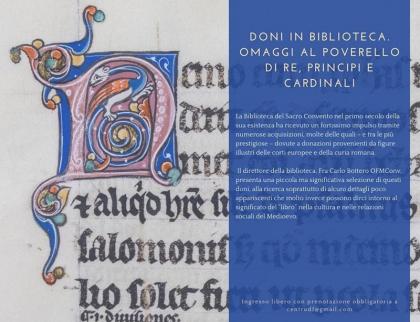 DONI IN BIBLIOTECA.
OMAGGI AL POVERELLO
DI RE, PRINCIPI E
CARDINALI
La Biblioteca del Sacro Convento nel primo secolo della
sua esistenza ha ricevuto un fortissimo impulso tramite
numerose acquisizioni, molte delle quali – e tra le più
prestigiose – dovute a donazioni provenienti da figure
illustri delle corti europee e della curia romana.
Il direttore della biblioteca. Fra Carlo Bottero OFMConv.
presenta una piccola ma significativa selezione di questi
doni, alla ricerca soprattutto di alcuni dettagli poco
appariscenti che molto invece possono dirci intorno al
significato del "libro" nella cultura e nelle relazioni
sociali del Medioevo.
Ingresso libero con prenotazione obbligatoria a
aliqd
salomonis
lio solet